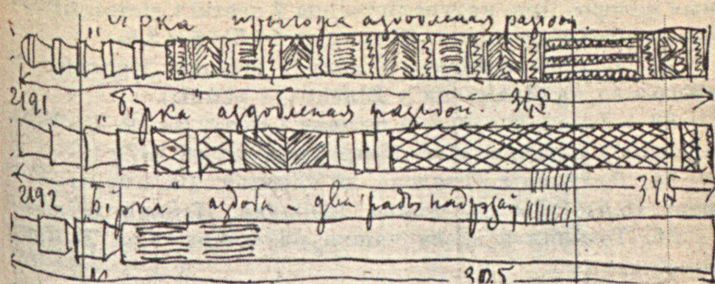 „Бірка" прыгожа аздобленая разьбою.
2191 34,8
„Бірка" аздобленая разьбой.
2192 34,5
„Бірка" аздоба – два рады надрэзаў
30,5